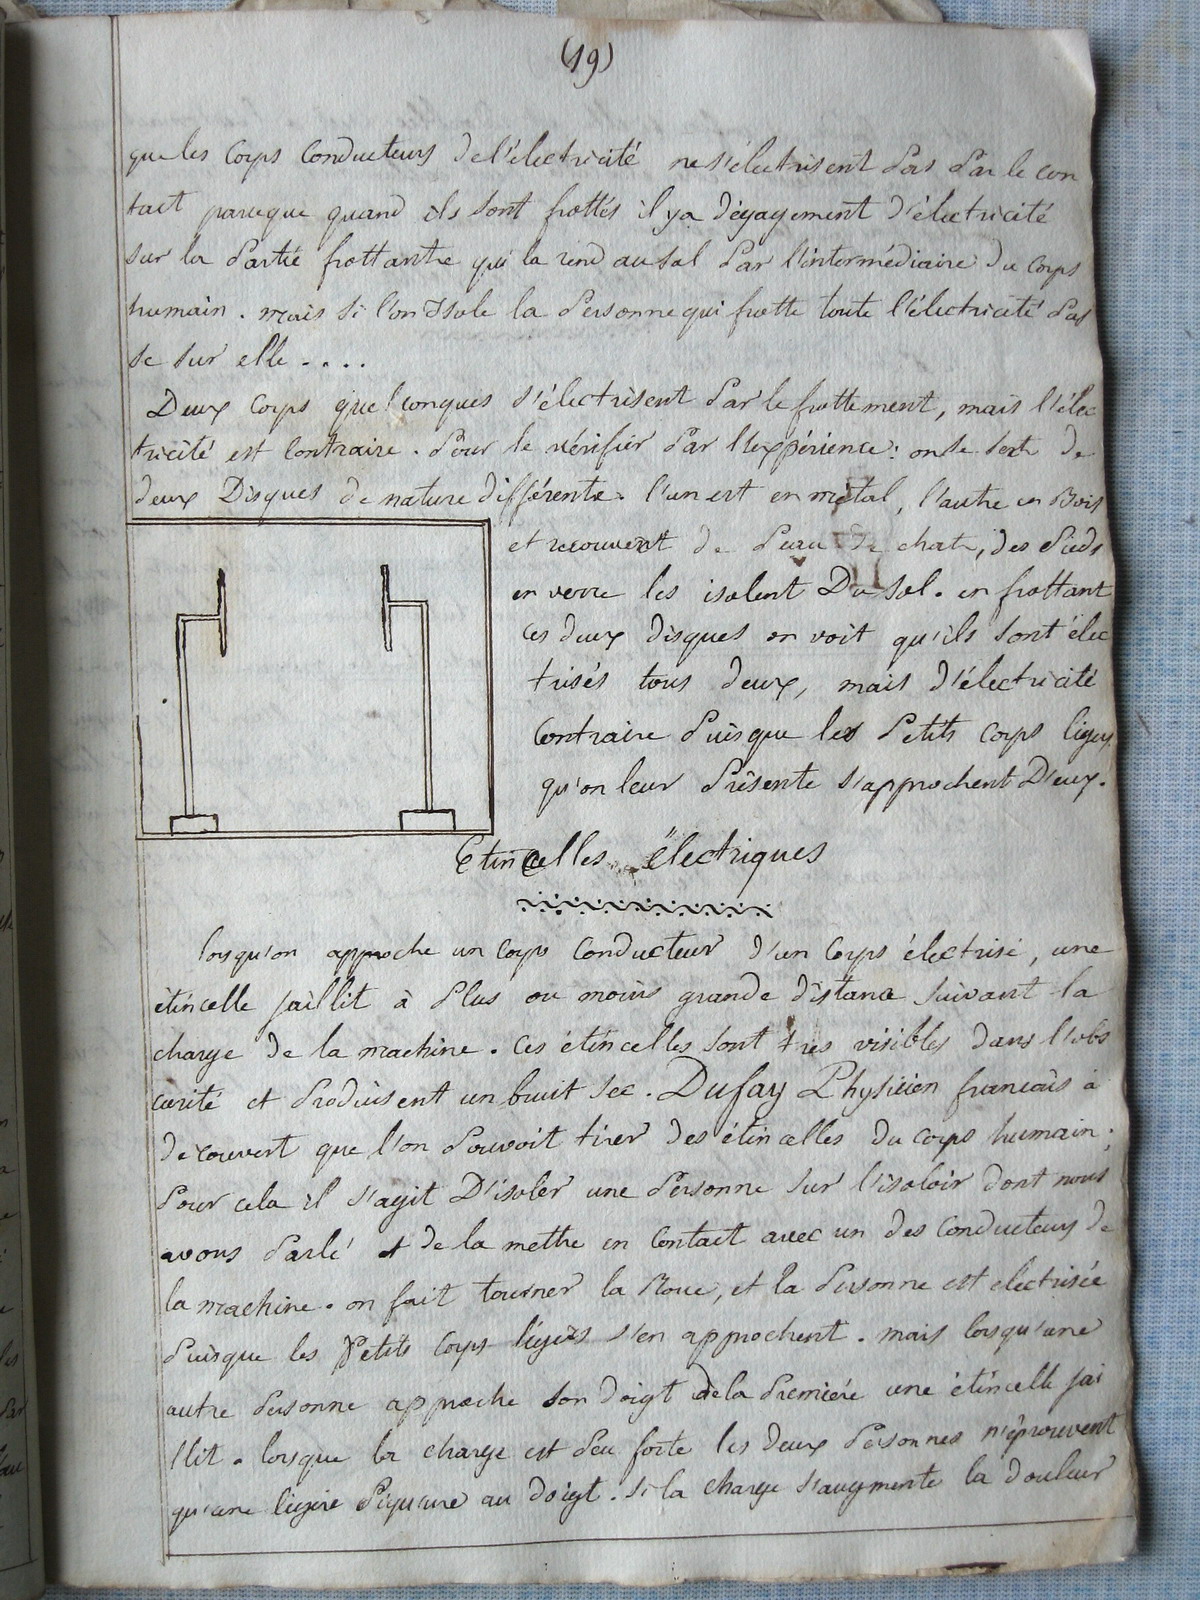 (19)
que les Corps Conducteurs de l'électricité ne s'électrisent pas par le con
tact parceque quand ils sont frottés il y a dégagement d'électricité
sur la partie frottante qui la rend au sol par l'intermédiaire du corps
humain. mais si l'on Isole la personne qui frotte toute l'électricité pas
se sur elle ....
Deux Corps quelconques s'électrisent par le frottement, mais l'élec
tricité est Contraire. pour le vérifier par l'expérience: on se sert de
deux Disques de nature différente. l'un est en métal, l'autre en Bois
et recouvert de peau de chat, des pieds
en verre les isolent Du sol. en frottant
ces deux disques on voit qu'ils sont élec
trisés tous deux, mais d'électricité
Contraire puisque les petits corps légers
qu'on leur présente s'approchent D'eux.
Etincelles électriques
lorsqu'on approche un corps Conducteur d'un Corps électrisé, une
étincelle jaillit à plus ou moins grande distance suivant la
charge de la machine. Ces étincelles sont très visibles dans l'obs
curité et produisent un bruit sec. Dufay Physicien francais à
découvert que l'on pouvoit tirer des étincelles du corps humain;
pour cela il s'agit D'isoler une personne sur l'isoloir dont nous
avons parlé et de la mettre en Contact avec un des Conducteurs de
la machine. on fait tourner la Roue, et la personne est electrisée
puisque les petits Corps légers s'en approchent. mais lorsqu'une
autre personne approche son doigt de la première une étincelle jai
llit. lorsque la charge est peu forte les deux personnes n'éprouvent
qu'une légère piqure au doigt. si la charge s'augmente la douleur